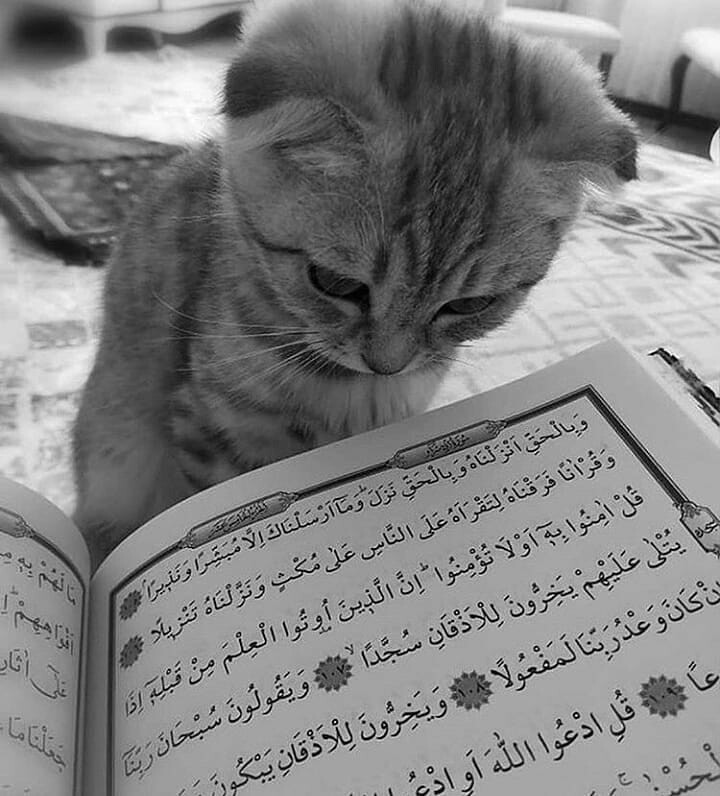 سُورَةُ الْاِسْرَاءِ
وَبِالْحَقِّ اَنْزَلْنَاهُ وَبِالْحَقِّ نَزَلَۜ وَمَٓا اَرْسَلْنَاكَ اِلَّا مُبَشِّرًا وَنَذِيرًاۢ ١٠٥
وَقُرْاٰنًا فَرَقْنَاهُ لِتَقْرَاَهُ عَلَى النَّاسِ عَلٰى مُكْثٍ وَنَزَّلْنَاهُ تَنْزِيلًا ١٠٦
قُلْ اٰمِنُوا بِهِٓ اَوْ لَا تُؤْمِنُواۜ اِنَّ الَّذِينَ اُو۫تُوا الْعِلْمَ مِنْ قَبْلِهِٓ اِذَا
يُتْلٰى عَلَيْهِمْ يَخِرُّونَ لِلْاَذْقَانِ سُجَّدًاۙ ١٠٧ وَيَقُولُونَ سُبْحَانَ رَبِّنَٓا
نْ كَانَ وَعْدُ رَبِّنَا لَمَفْعُولًا ١٠٨ وَيَخِرُّونَ لِلْاَذْقَانِ يَبْكُونَ
عًا ١٠٩ قُلِ ادْعُوا اللّٰهَ اَوِ ادْعُوا
مَا لَهُمْ بِهِ
اَفْوَاهِهِمْ
عَلٰٓى اٰثَارِ
جَعَلْنَا مَا